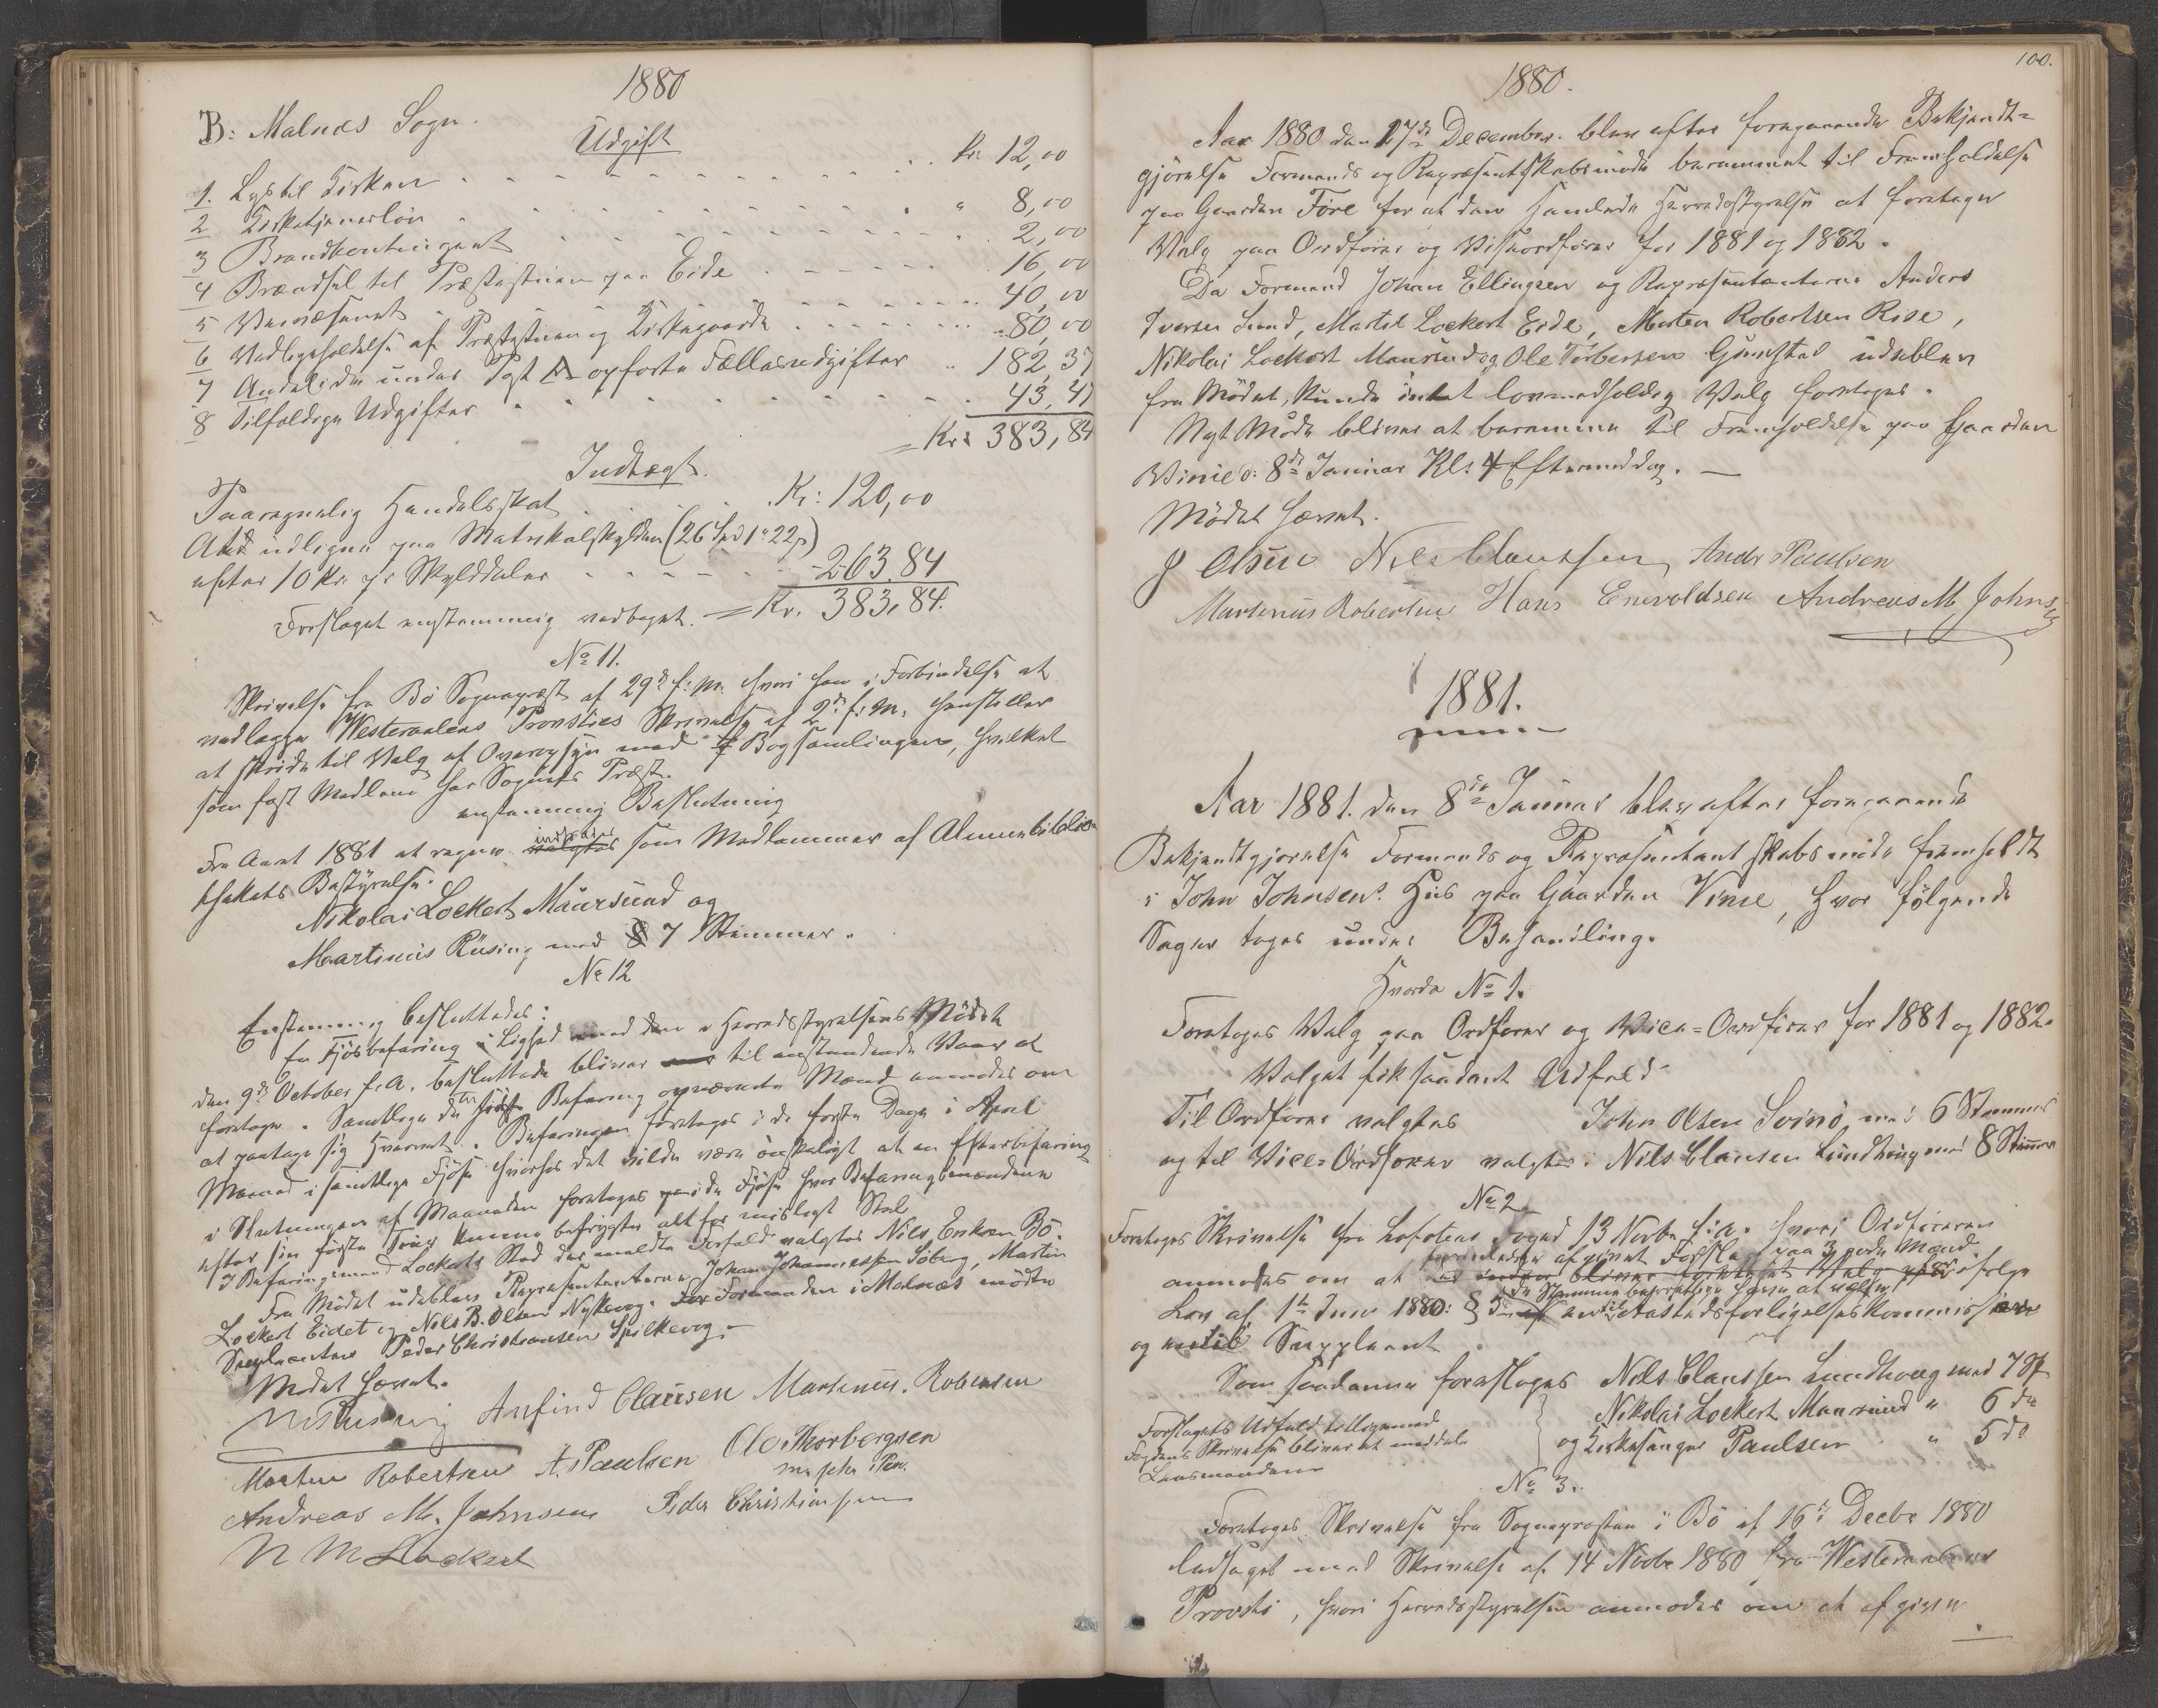 1880
B: Malnæs Sogn.
Udgift
1. Lys til Kirken . . . Kr. 12,00
2 Kirketjenerløn . . . " 8,00
3 Brandkontingent . . . 2,00
4 Brændsel til Præstestuen paa Eide . . . 16,00
5 Veivæsenet . . . 40,00
6 Vedligeholdelse af Præstestuen og Kirkegaarde . . . 80,00
7 Andel i de under Post A opførte Fællesudgifter " 182,37
8 Tilfældige Udgifter . . . 43,47
= Kr: 383,84
Indtægt.
Paaregnelig Handelsskat . . . Kr: 120,00
At udligne paa Matrikulskylden (26 Spd 1 " 22 s)
efter 10 Kr. pr Skylddaler . . . - 263.84
Forslaget enstemmig vedtaget. = Kr. 383,84.
No 11.
Skrivelse fra Bø Sognepræst af 29de f: M. hvori han i Forbindelse at
vedlægge Westeraalens Provsties Skrivelse af 2den f: M. henstiller
at skride til Valg af Overopsyn med Bogsamlingen, hvilket
som fast Medlem har Sognets Præst.
enstemmig Beslutning
Fra Aaret 1881 at regne valgtes som Medlemmer af Almuebiblio-
thekets Bestyrelse.
Nikolai Lockert Maursund og
Martinus Rusing med 7 Stemmer.
No 12
Enstemmig besluttedes:
En Fjøsbefaring i Lighed med den i Herredsstyrelsens Møde
den 9de October f. A. besluttede bliver til anstundende Vaar at
foretage. Samtlige de til Befaring opnævnte Mænd anmodes om
at paatage sig Hvervet. Befaringen foretages i de første Dage i April
Maaned i samtlige Fjøse hvorhos det vilde være ønskeligt at en Efterbefaring
i Slutningen af Maaneden foretages i de Fjøse hvor Befaringsmændene
efter sin første Tour kunne befrygte alt for misligt Stel
I Befaringsmand Lockerts Sted der meldte Forfald valgtes Nils Eriksen Bø.
Fra Mødet udeblev Repræsentanterne Johan Johannessen Søberg, Martin
Lockert Eidet og Nils B. Olsen Nykevog. For Formanden i Malnæs mødte
Suppleanten Peder Christiansen Spilkevog.
Mødet hævet.
Arfind Clausen Martinus. Robertsen
Morten Robertsen A. Paulsen Ole Thorbergsen
m. p. Pen.
Andreas M. Johnsen Peder Christiansen
N M Lockert
100.
1880.
Aar 1880 den 27de December. blev efter foregaaende Bekjendt-
gjørelse Formands og Repræsentskabsmøde berammet til Fremholdelse
paa Gaarden Føre for at den samlede Herredsstyrelse at foretage
Valg paa Ordfører og Viseordfører for 1881 og 1882.
Da Formand Johan Ellingsen og Repræsentanterne Anders
Iversen Sund, Martin Lockert Eide, Morten Robertsen Rise,
Nikolai Lockert Maursund og Ole Torbersen Guvstad udeblev
fra Mødet, kunde intet lovmedholdig Valg foretages.
Nyt Møde bliver at beramme til Fremholdelse paa Gaarden
Vinje d: 8de Januar Kl: 4 Eftermiddag. —
Mødet hævet.
J Olsen Nils Claussen, Andr Paulsen
Martinus Robertsen Hans Enevoldsen Andreas M. Johnsen
1881.
Aar 1881. den 8de Januar blev efter foregaaende
Bekjendtgjørelse Formands og Repræsentantskabsmøde fremholdt
i John Johnsens Hus paa Gaarden Vinje, hvor følgende
Sager toges under Behandling.
Herreds No 1.
Foretoges Valg paa Ordfører og Vice-Ordfører for 1881 og 1882.
Valget fik saadant Udfald
Til Ordfører valgtes John Olsen Svinø med 6 Stemmer
og til Vice-Ordfører valgtes: Nils Clausen Lundhoug med 8 Stemmer
No 2.
Foretoges Skrivelse fra Lofotens Foged 13 Novbr f: A. hvori Ordføreren
anmodes om at afgivet Forslag paa 3 gode Mænd
Lov af 1ste Juni 1880: § 3 Aastedsforligelseskommission
og Suppleant
Som saadanne foresloges Nils Claussen Lundhoug med 7 St
Nikolai Lockert Maursund " 6 do
og Kirkesanger Paulsen " 5 do
Forslagets Udfald tilligemed
Fogdens Skrivelse bliver at meddele
Lensmanden
No 3.
Foretoges Skrivelse fra Sognepræsten i Bø af 16de Decbr 1880
ledsaget med Skrivelse af 14 Novbr 1880 fra Westeraalens
Provsti, hvori Herredsstyrelsen anmodes om at afgive